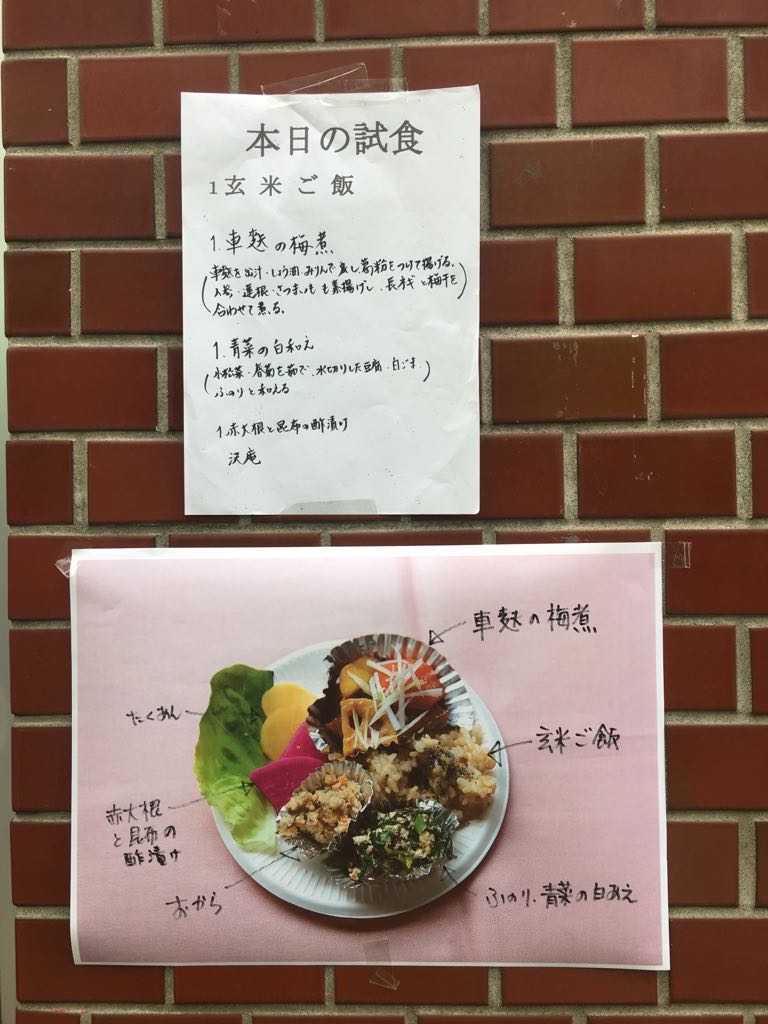 本日の試食
1玄米ご飯
1.車麩の梅煮
(車麩を出汁・しょう油・みりんで戻し、葛粉をつけて揚げる。
人参・蓮根・さつまいもも素揚げし、長ネギと梅干を
合わせて煮る。)
1.青菜の白和え
(小松菜・春菊を茹で、水切りした豆腐・白ごま、
ふのりと和える)
1.赤大根と昆布の酢漬け
沢庵
車麩の梅煮
たくあん
玄米ご飯
赤大根
と昆布の
酢漬け
おから
ふのり、青菜の白和え